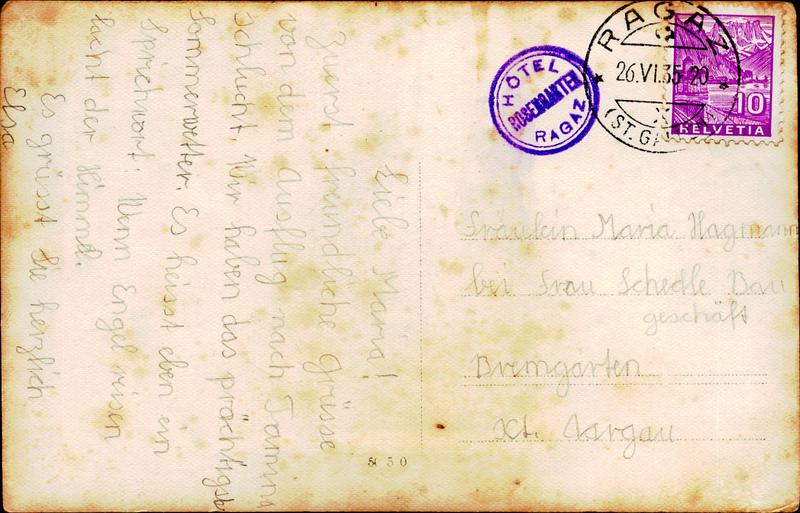 Liebe Maria!
Zuerst freundliche Grüsse
von dem Ausflug nach Tamina
schlucht. Wir haben das prächtigste
Sommerwetter. Es heisst eben ein
Sprichwort: Wenn Engel reisen
lacht der Himmel.
Es grüsst Sie herzlich
Elsa
HÔTEL
ROSENGARTEN
RAGAZ
RAGAZ
26.VI.35-20
(ST. GA
10
HELVETIA
Fräulein Maria Hagmann
bei Frau Schedle Bau
geschäft
Bremgarten
Kt. Aargau
50